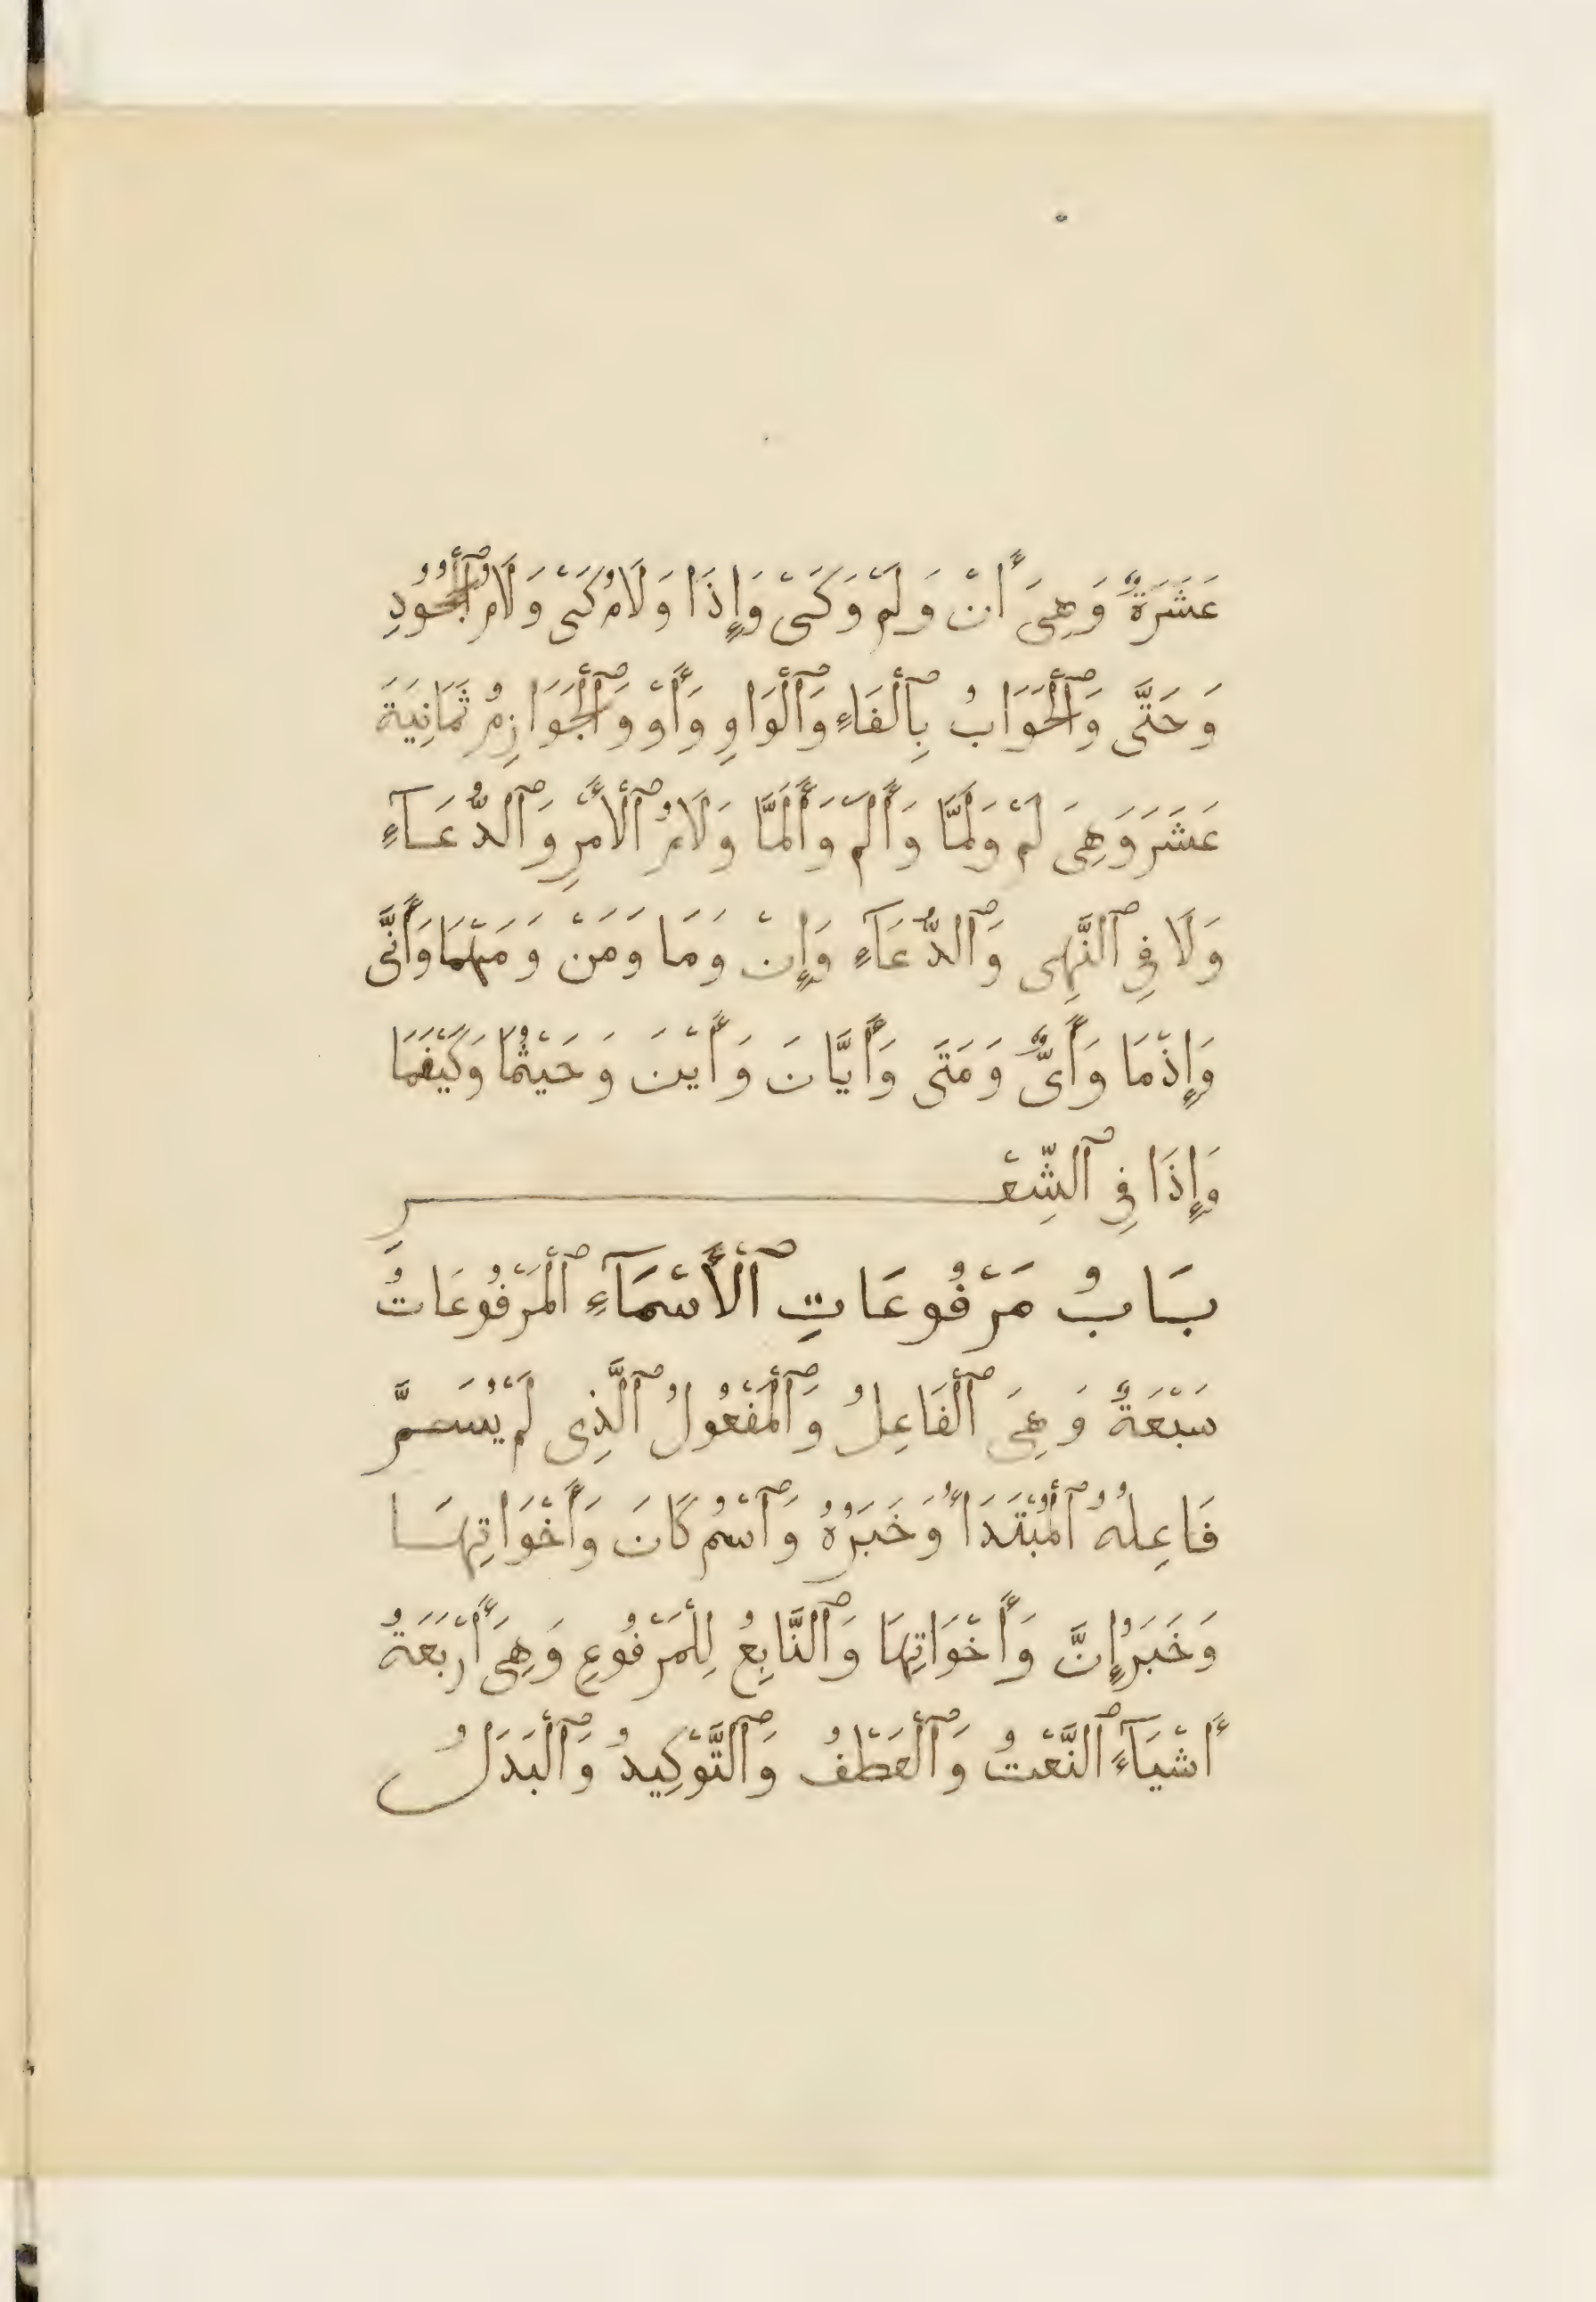 عَشَرَةٌ وَهِىَ أَنْ وَلَمْ وَكَىْ وَإِذَا وَلَامُ كَىْ وَلَامُ ٱلْجُحُودِ
وَحَتَّى وَٱلْجَوَابُ بِٱلْفَاءِ وَٱلْوَاوِ وَأَوْ وَٱلْجَوَازِمُ ثَمَانِيَةَ
عَشَرَ وَهِىَ لَمْ وَلَمَّا وَأَلَمْ وَأَلَمَّا وَلَامُ ٱلْأَمْرِ وَٱلدُّعَآءِ
وَلَا فِى ٱلنَّهِى وَٱلدُّعَآءِ وَإِنْ وَمَا وَمَنْ وَمَهْمَا وَأَنَّى
وَإِذْمَا وَأَىٌّ وَمَتَى وَأَيَّانَ وَأَيْنَ وَحَيْثُمَا وَكَيْفَمَا
وَإِذَا فِى ٱلشِّعْرِ
بَابُ مَرْفُوعَاتِ ٱلْأَسْمَآءِ ٱلْمَرْفُوعَاتُ
سَبْعَةٌ وَهِىَ ٱلْفَاعِلُ وَٱلْمَفْعُولُ ٱلَّذِى لَمْ يُسَمَّ
فَاعِلُهُ ٱلْمُبْتَدَأُ وَخَبَرُهُ وَٱسْمُ كَانَ وَأَخْوَاتِهَا
وَخَبَرُ إِنَّ وَأَخْوَاتِهَا وَٱلتَّابِعُ لِلْمَرْفُوعِ وَهِىَ أَرْبَعَةُ
أَشْيَآءً ٱلنَّعْتُ وَٱلْعَطْفُ وَٱلتَّوْكِيدُ وَٱلْبَدَلُ